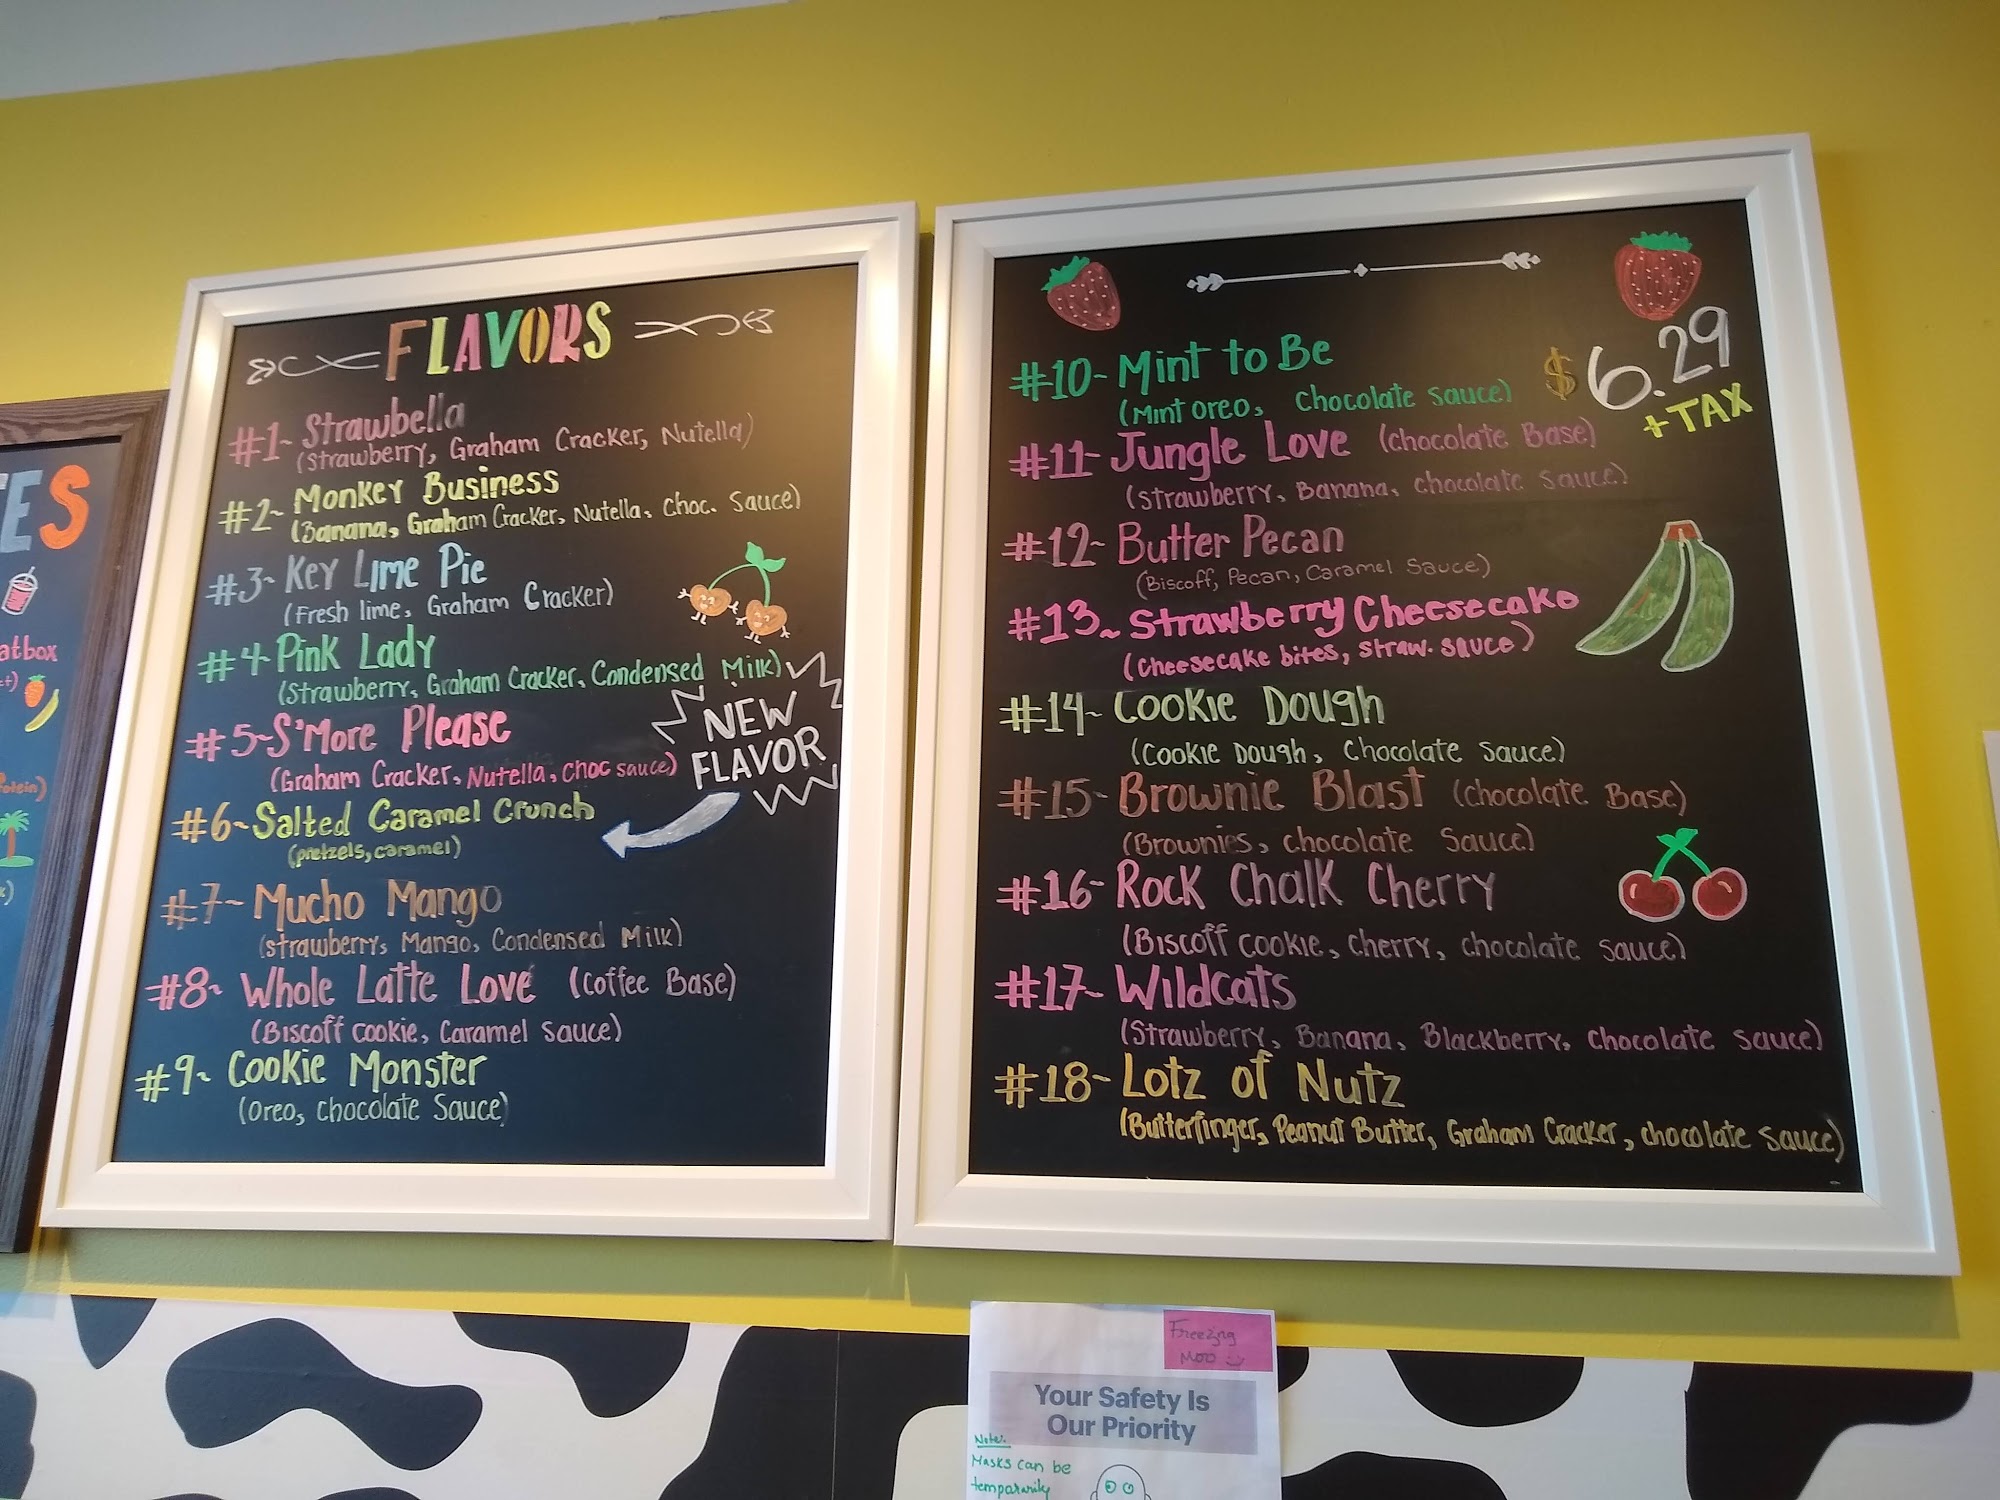 ES
atbox
FLAVORS
#1- Strawbella
(Strawberry, Graham Cracker, Nutella)
#2- Monkey Business
(Banana, Graham Cracker, Nutella, Choc. Sauce)
#3- Key Lime Pie
(Fresh lime, Graham Cracker)
#4- Pink Lady
(Strawberry, Graham Cracker, Condensed Milk)
#5- S'More Please
(Graham Cracker, Nutella, Choc sauce)
NEW
FLAVOR
#6- Salted Caramel Crunch
(pretzels, caramel)
#7- Mucho Mango
(strawberry, Mango, Condensed Milk)
#8- Whole Latte Love (Coffee Base)
(Biscoff cookie, Caramel sauce)
#9- Cookie Monster
(Oreo, Chocolate Sauce)
$6.29
+ TAX
#10- Mint to Be
(Mint oreo, Chocolate sauce)
#11- Jungle Love (chocolate Base)
(strawberry, Banana, chocolate sauce)
#12- Butter Pecan
(Biscoff, Pecan, Caramel Sauce)
#13- Strawberry Cheesecake
(Cheesecake bites, straw. sauce)
#14- Cookie Dough
(Cookie Dough, Chocolate Sauce)
#15- Brownie Blast (chocolate Base)
(Brownies, chocolate sauce)
#16- Rock Chalk Cherry
(Biscoff cookie, cherry, chocolate sauce)
#17- Wildcats
(Strawberry, Banana, Blackberry, chocolate sauce)
#18- Lotz of Nutz
(Butterfinger, Peanut Butter, Graham Cracker, chocolate sauce)
Freezing
Moo
Your Safety Is
Our Priority
Note:
Masks can be
temporarily